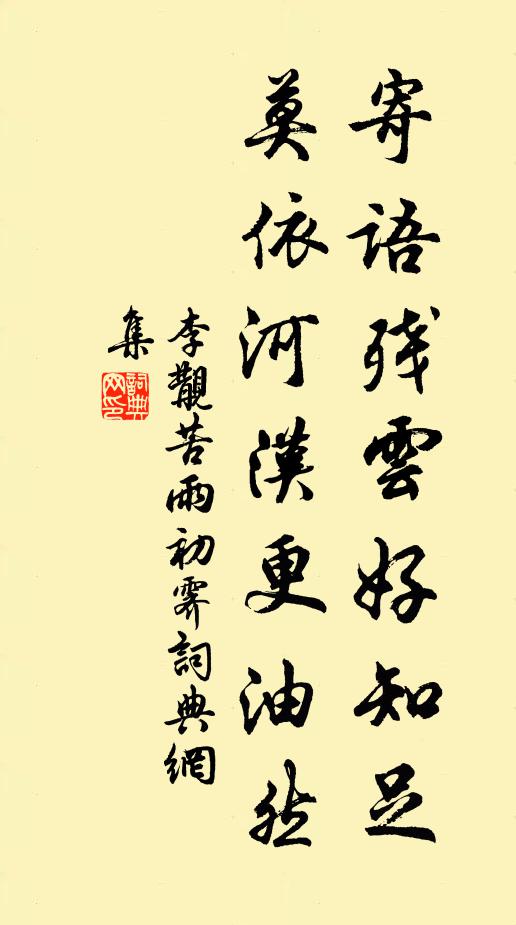 寄語残雲好知足
莫依河漢更油然
李覯苦雨初霽詞典網
集
詞典网印